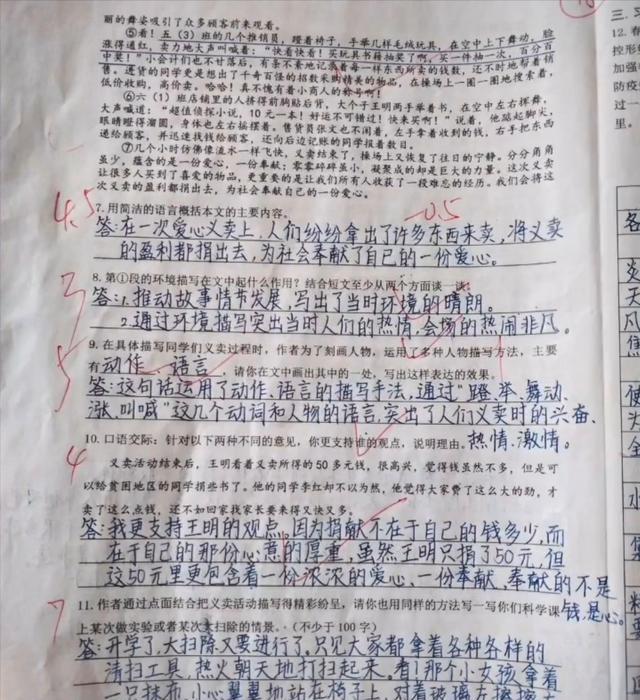 丽的舞姿吸引了众多顾客前来观看。
⑤看!五(3)班的几个推销员,蹬着椅子,手举几样毛绒玩具,在空中上下舞动,脸
涨得通红,卖力地大声叫喊着:“快看快看!买玩具书籍抽奖了啊,买一件抽一次,百分百
中奖!”小会计们也不甘落后,有条不紊地记录着每一样东西所卖的钱数,还不时地帮着销
售。逛货的同学更是想出了千奇百怪的招数来购精美的物品,在操场上一圈一圈地搜索着,
低价收购,高价卖。哈哈!真不愧有着小商人的称号啊!
⑥六(1)班店铺里的人挤得前胸贴后背,大个子王明两手举着书,在空中左右挥舞,
大声喊道:“超值侦探小说,10元一本!好运不可错过!快来买啊!”说着,他踮起脚尖,
眼睛瞪得溜圆,身体也左右摇摆着。售货员张文也不闲着,左手拿着收到的钱,右手把东西
递给顾客,并迅速找钱给顾客,还向后边记账的同学报着数目。
⑦几个小时仿佛像流水一样飞快,义卖结束了,操场上又恢复了往日的宁静。分分角角
虽少,蕴含的是一份爱心,一份奉献;零零碎碎虽小,凝聚成的却是巨大的力量。这次义卖
让很多人买到了喜爱的物品,更重要的是让我们所有人收获了一段难忘的经历。我们会将这
次义卖的盈利都捐出去,为社会奉献自己的一份爱心。
4.5
-0.5
7.用简洁的语言概括本文的主要内容。
答:在一次爱心义卖上,人们纷纷拿出了许多东西来卖,将义卖
的盈利都捐出去,为社会奉献了自己的一份爱心。
8.第①段的环境描写在文中起什么作用?结合短文至少从两个方面谈一谈。
答:1.推动故事情节发展,写出了当时环境的晴朗。
2.通过环境描写突出当时人们的热情,会场的热闹非凡。
9.在具体描写同学们义卖过程时,作者为了刻画人物,运用了多种人物描写方法,主要
有动作、语言,请你在文中画出其中的一处,写出这样表达的效果。
答:这句话运用了动作、语言的描写手法,通过“蹬、举、舞动、
涨、叫喊”这几个动词和人物的语言,突出了人们义卖时的兴奋、
热情、激情。
10.口语交际:针对以下两种不同的意见,你更支持谁的观点,说明理由。
4
义卖活动结束后,王明看着义卖所得的50多元钱,很高兴,觉得钱虽然不多,但是可
以给贫困地区的同学捐些书了。他的同学李红却不以为然,他觉得大家费了这么大的劲,才
卖了这么点钱,还不如回家我家长要来得又快又多。
答:我更支持王明的观点。因为捐献不在于自己的钱多少,而
在于自己的那份心意的厚重,虽然王明只捐了50元,但
这50元里更包含着一份浓浓的爱心,一份奉献,奉献的不是
钱,是心。
7
11.作者通过点面结合把义卖活动描写得精彩纷呈,请你也用同样的方法写一写你们科学课
上某次做实验或者某次大扫除的情景。(不少于100字)
答:开学了,大扫除又要进行了。只见大家都拿着各种各样的
清扫工具,热火朝天地打扫起来。看!那个小女孩拿着
一只抹布,小心翼翼地站在椅子上,对着玻璃
三
12.春
控形
加强
防疫
过一
里。
各
天
风
焦
使
为
全
水